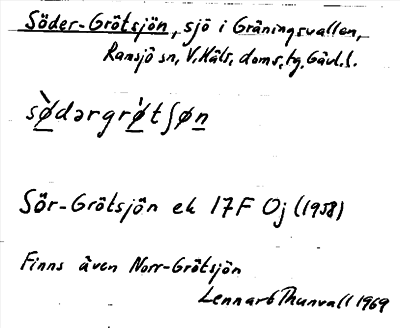 Söder-Grötsjön, sjö i Gräningsvallen,
Ransjö sn, V. Häls. doms. tg, Gävl. l.
sø̀dərgrø̀tʃøn
Sör-Grötsjön ek 17F Oj (1958)
Finns även Norr-Grötsjön
Lennart Thunvall 1969